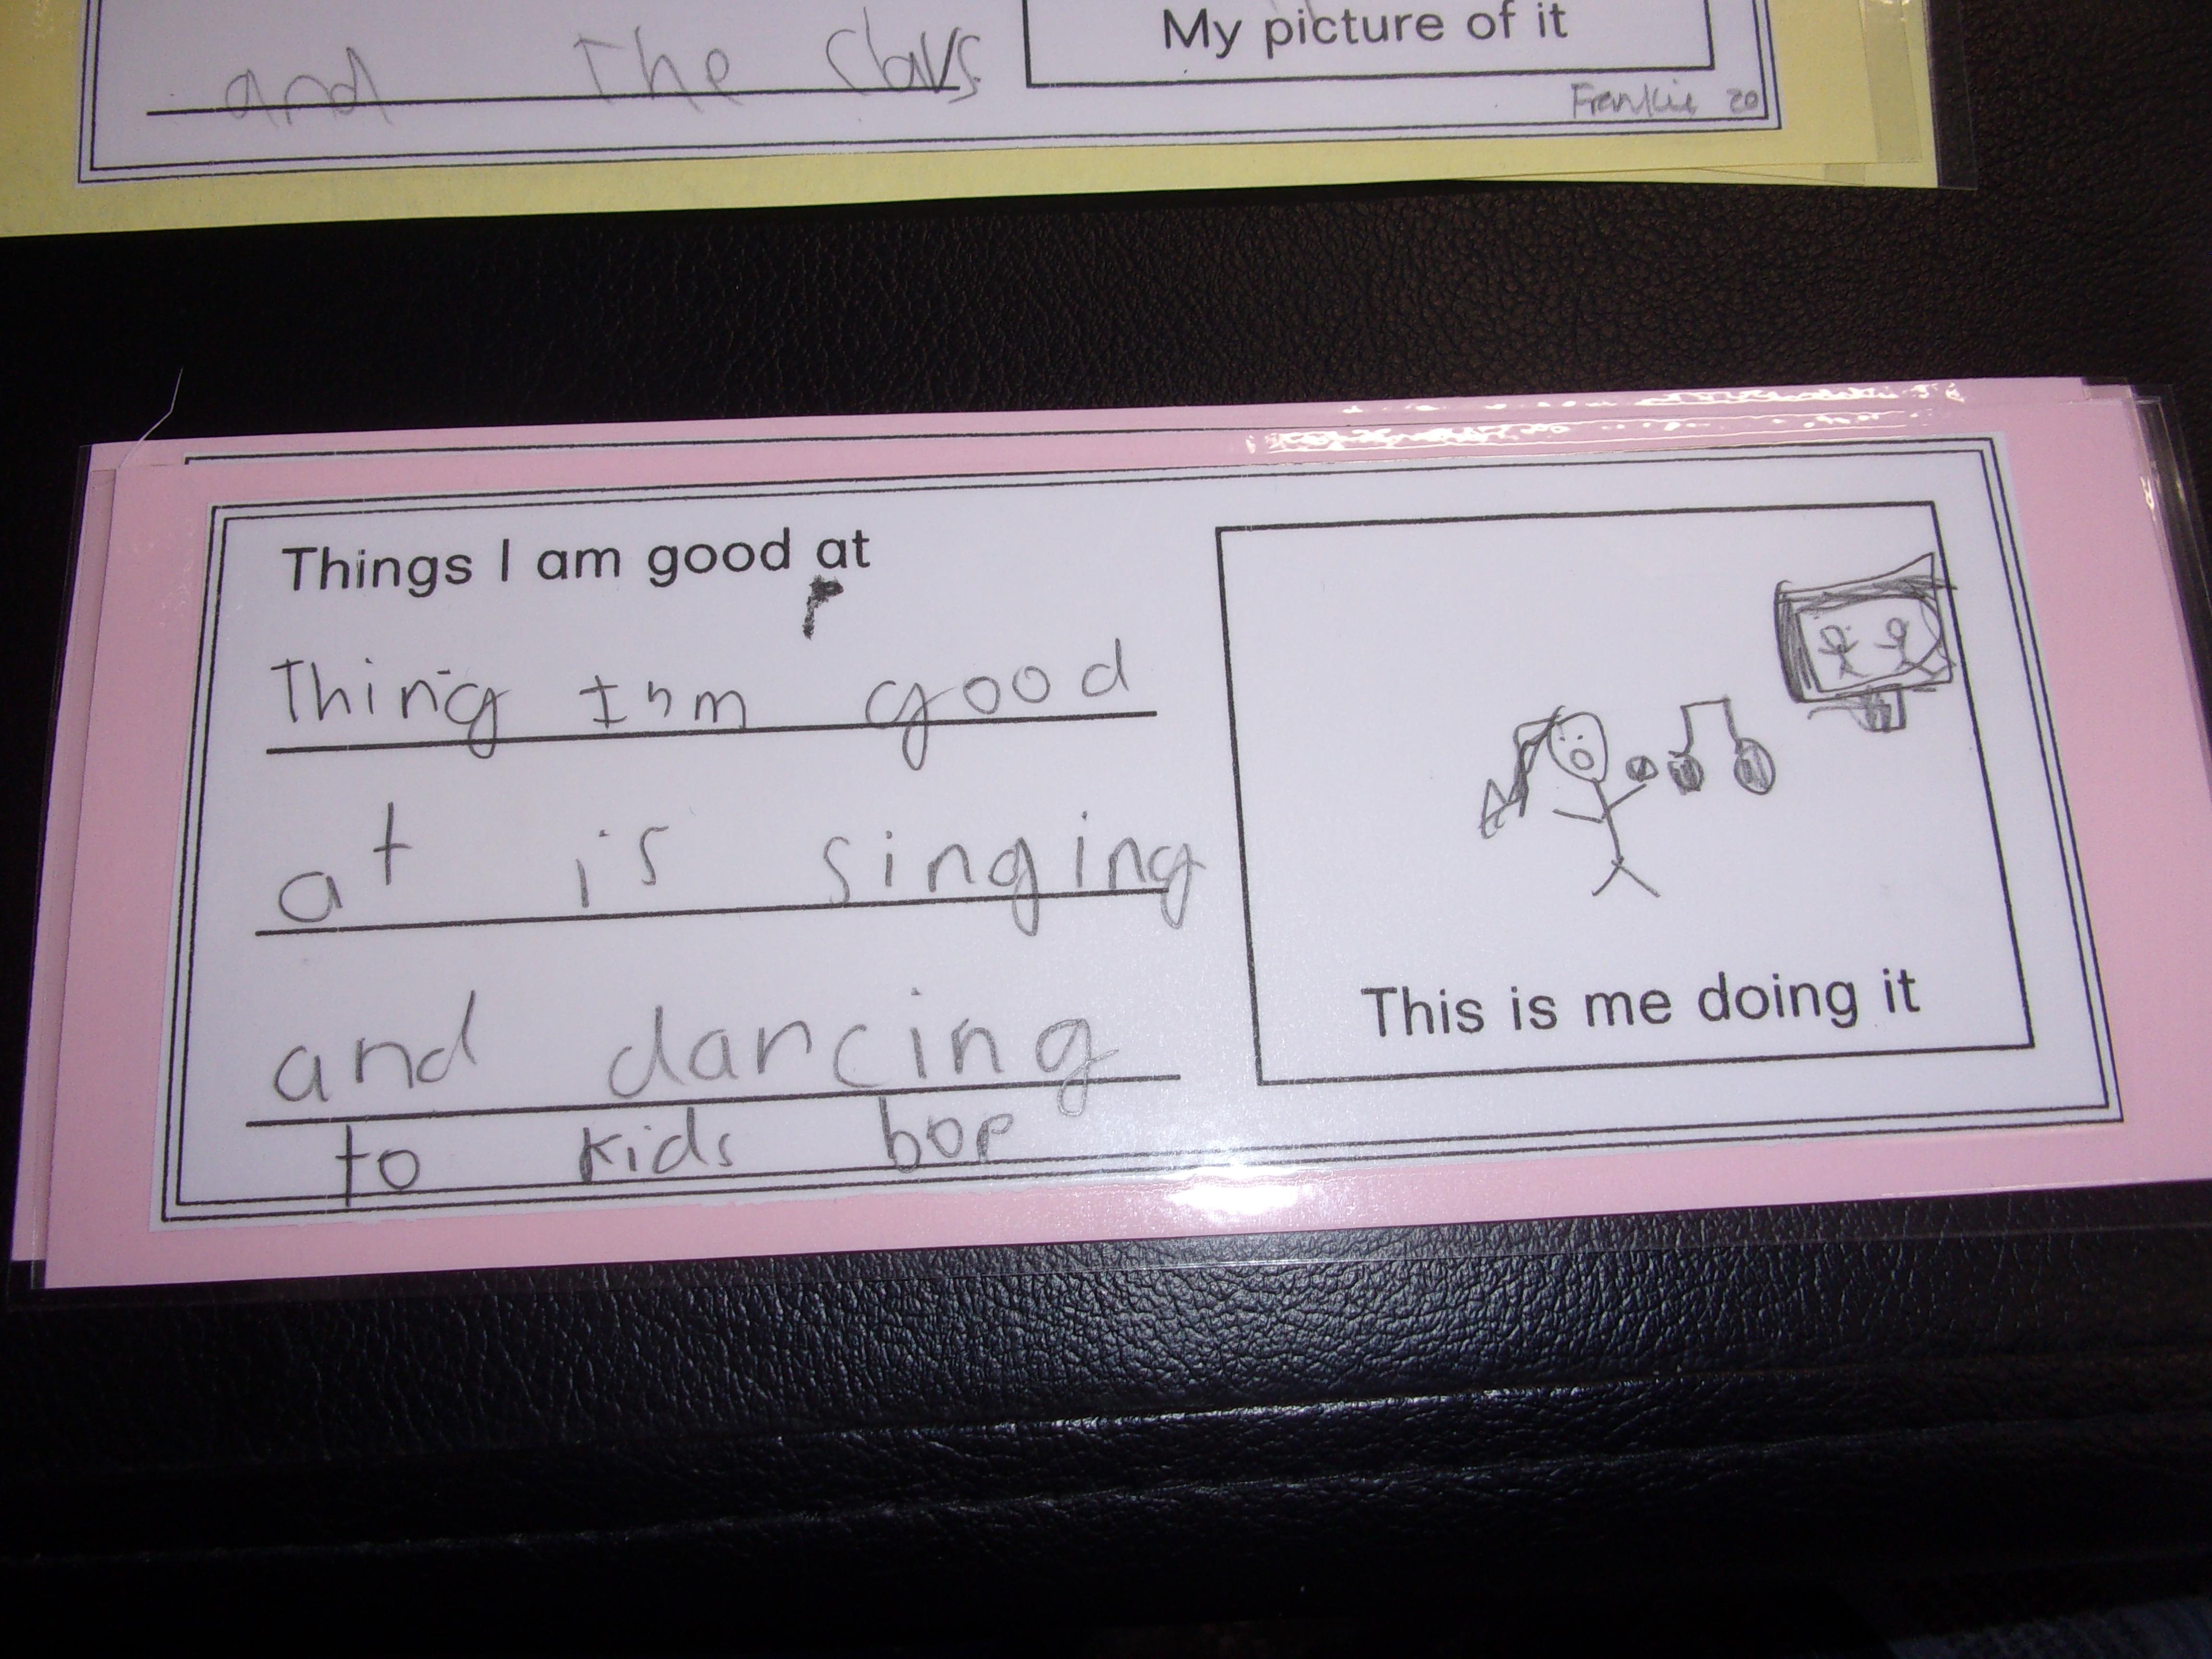 My picture of it
and the
Frankie 20
Things I am good at
Thing Inm good
at is singing
and dancing
to kids bop
This is me doing it